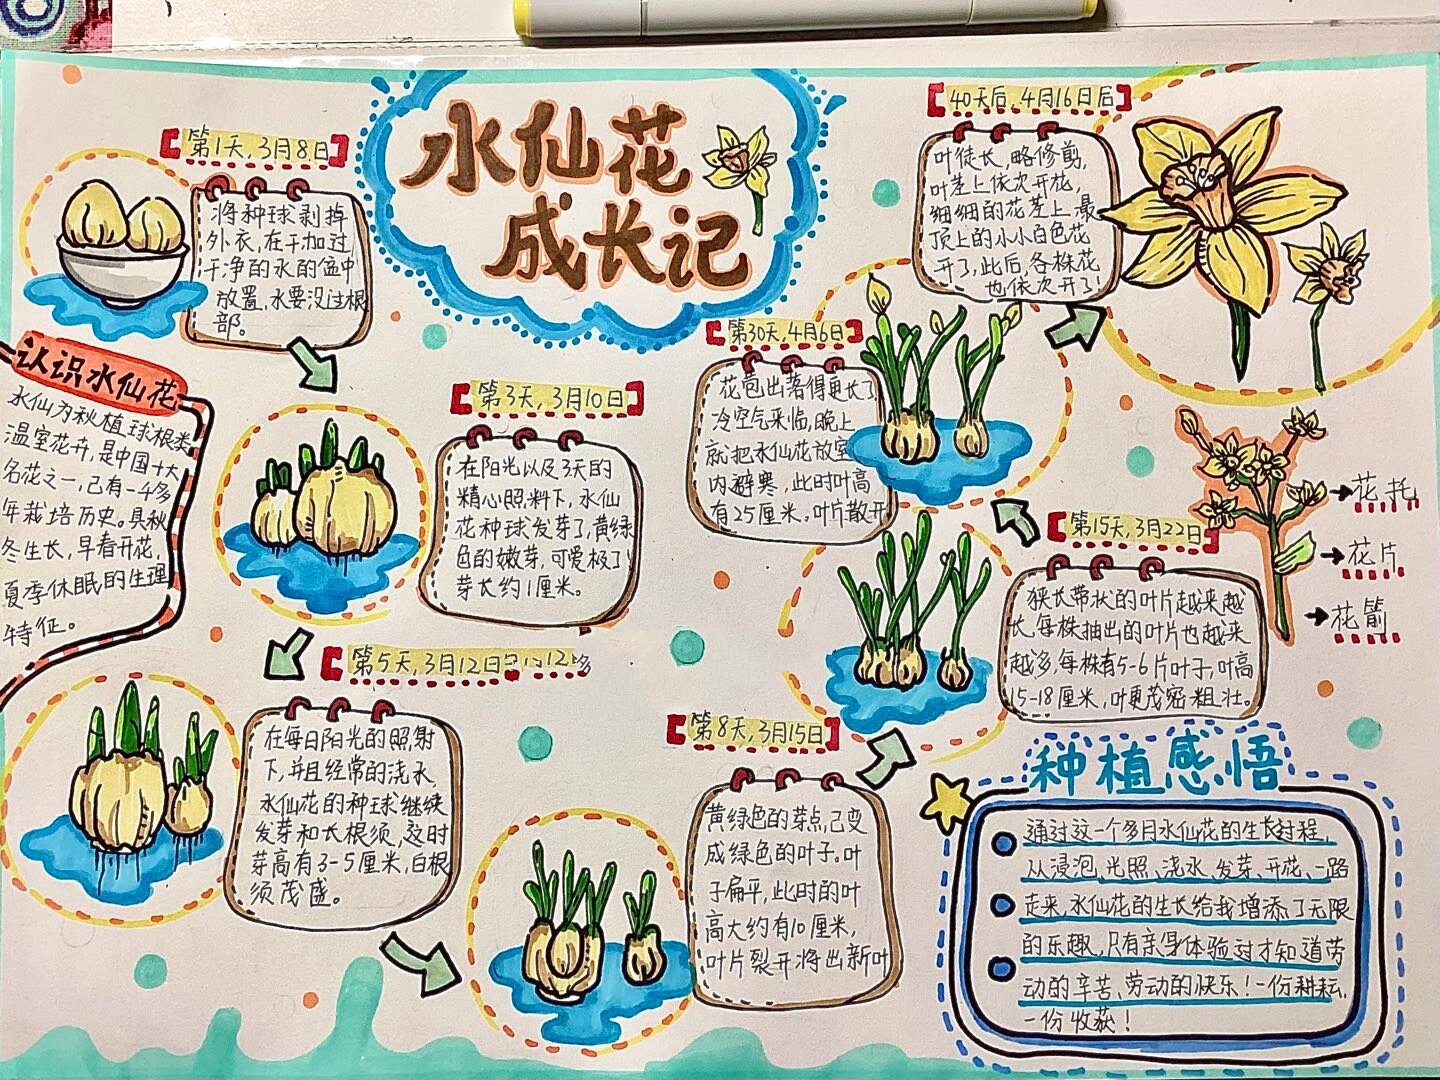 水仙花
成长记
第1天,3月8日
将种球剥掉
外衣,在干加过
干净的水的盆中
放置,水要没过根
部。
认识水仙花
水仙为秋植球根类
温室花卉,是中国十大
名花之一,已有一千多
年栽培历史。具秋
冬生长,早春开花,
夏季休眠的生理
特征。
第3天,3月10日
在阳光以及3天的
精心照料下,水仙
花种球发芽了,黄绿
色的嫩芽,可爱极了
芽长约1厘米。
第5天,3月12日
在每日阳光的照射
下,并且经常的浇水,
水仙花的种球继续
发芽和长根须,这时
芽高有3-5厘米,白根
须茂盛。
第8天,3月15日
黄绿色的芽点,已变
成绿色的叶子。叶
子扁平,此时的叶
高大约有10厘米,
叶片裂开将出新叶
第15天,3月22日
狭长带状的叶片越来越
长,每株抽出的叶片也越来
越多,每株有5-6片叶子,叶高
15-18厘米,叶更茂密粗壮。
第30天,4月6日
花苞出落得更长了
冷空气来临,晚上
就把水仙花放室
内避寒,此时叶高
有25厘米。叶片散开
40天后,4月16日后
叶徒长,略修剪,
叶茎上依次开花,
细细的花茎上,最
顶上的小小白色花
开了,此后,各株花
也依次开了!
花托
花片
花箭
种植感悟
通过这一个多月水仙花的生长过程,
从浸泡、光照、浇水、发芽、开花、一路
走来,水仙花的生长给我增添了无限
的乐趣,只有亲身体验过才知道劳
动的辛苦、劳动的快乐!一份耕耘,
一份收获!